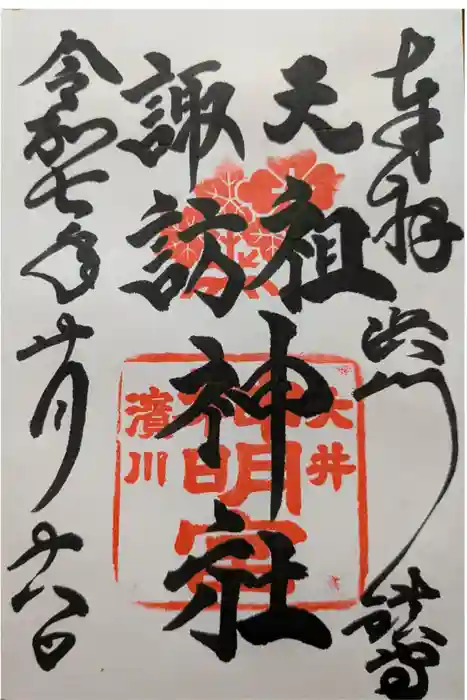 奉拝 浜川鎮守
天祖
諏訪
神社
令和七年十月十八日
大井
神明宮
濱川